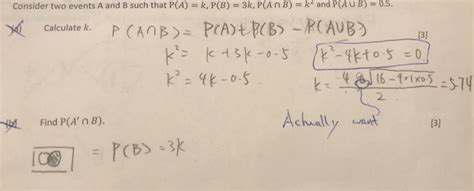 Consider two events A and B such that P(A) = k, P(B) = 3k, P(A ∩ B) = k² and P(A ∪ B) = 0.5.
Calculate k. P(A∩B) = P(A) + P(B) - P(A∪B)
[3]
k² = k + 3k - 0.5
k² - 4k + 0.5 = 0
k² = 4k - 0.5
k = 4 √16 - 4×1×0.5 = 5.74
2
Actually want
Find P(A′ ∩ B).
[3]
= P(B) = 3k